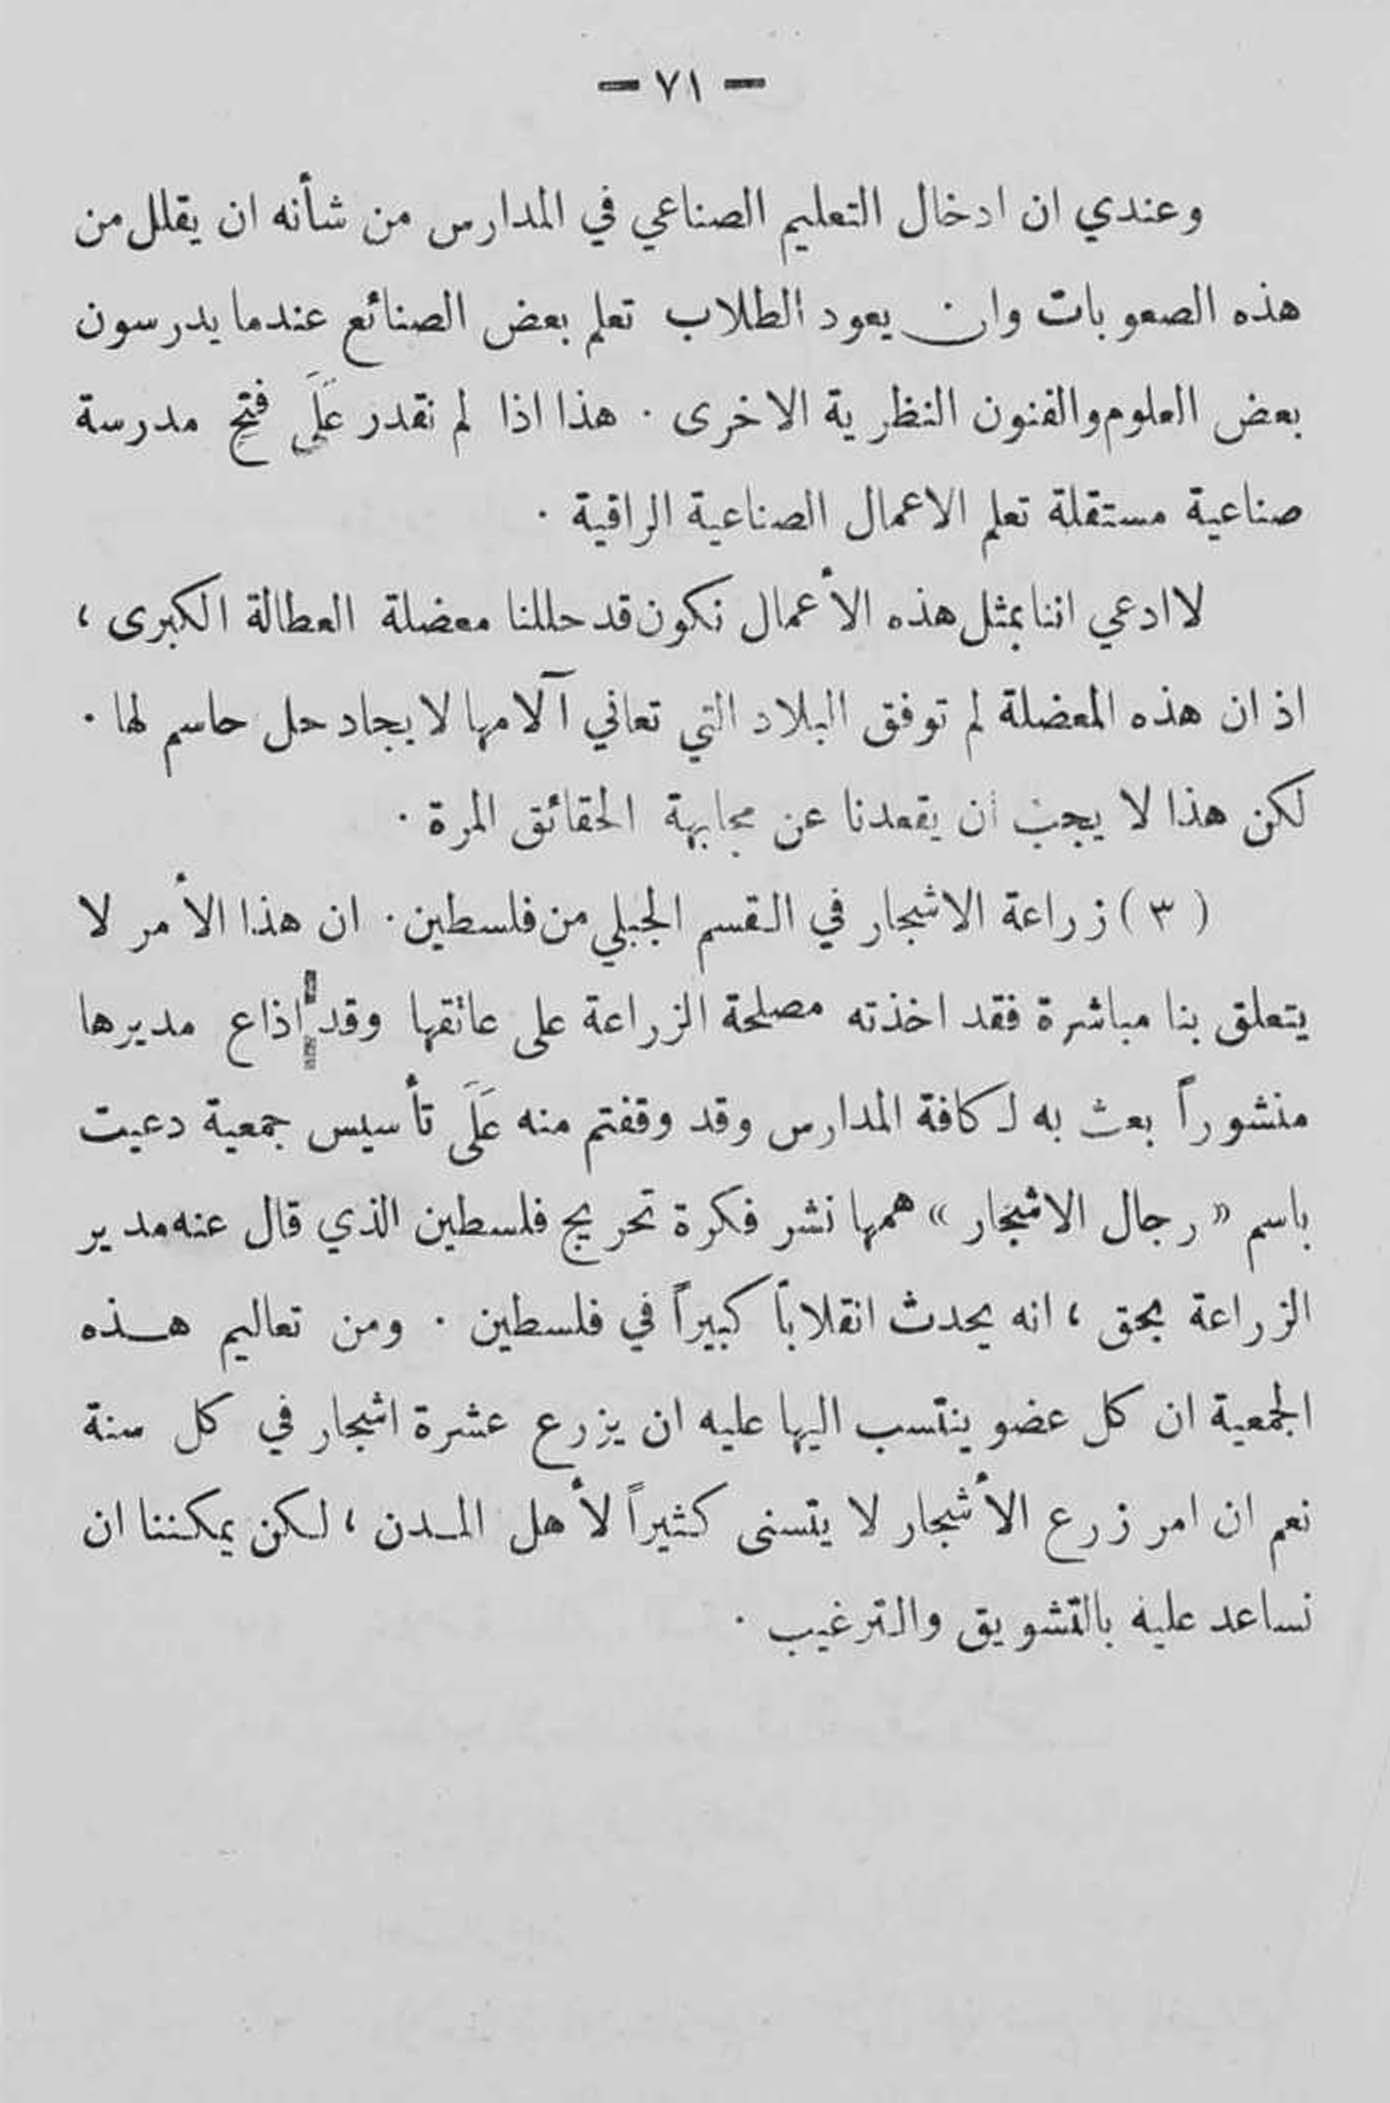 — ٧١ —
وعندي ان ادخال التعليم الصناعي في المدارس من شأنه ان يقلل من
هذه الصعوبات وان يعود الطلاب تعلم بعض الصنائع عندما يدرسون
بعض العلوم والفنون النظرية الاخرى . هذا اذا لم نقدر عَلَى فتح مدرسة
صناعية مستقلة تعلم الاعمال الصناعية الراقية .
لا ادعي اننا بمثل هذه الأعمال نكون قد حللنا معضلة العطالة الكبرى ،
اذ ان هذه المعضلة لم توفق البلاد التي تعاني آلامها لايجاد حل حاسم لها .
لكن هذا لا يجب ان يقعدنا عن مجابهة الحقائق المرة .
( ٣ ) زراعة الاشجار في القسم الجبلي من فلسطين . ان هذا الأمر لا
يتعلق بنا مباشرة فقد اخذته مصلحة الزراعة على عاتقها وقد اذاع مديرها
منشوراً بعث به لكافة المدارس وقد وقفتم منه عَلَى تأسيس جمعية دعيت
باسم « رجال الاشجار » همها نشر فكرة تحريج فلسطين الذي قال عنه مدير
الزراعة بحق ، انه يحدث انقلاباً كبيراً في فلسطين . ومن تعاليم هـذه
الجمعية ان كل عضو ينتسب اليها عليه ان يزرع عشرة اشجار في كل سنة
نعم ان امر زرع الأشجار لا يتسنى كثيراً لأهل المـدن ، لكن يمكننا ان
نساعد عليه بالتشويق والترغيب .